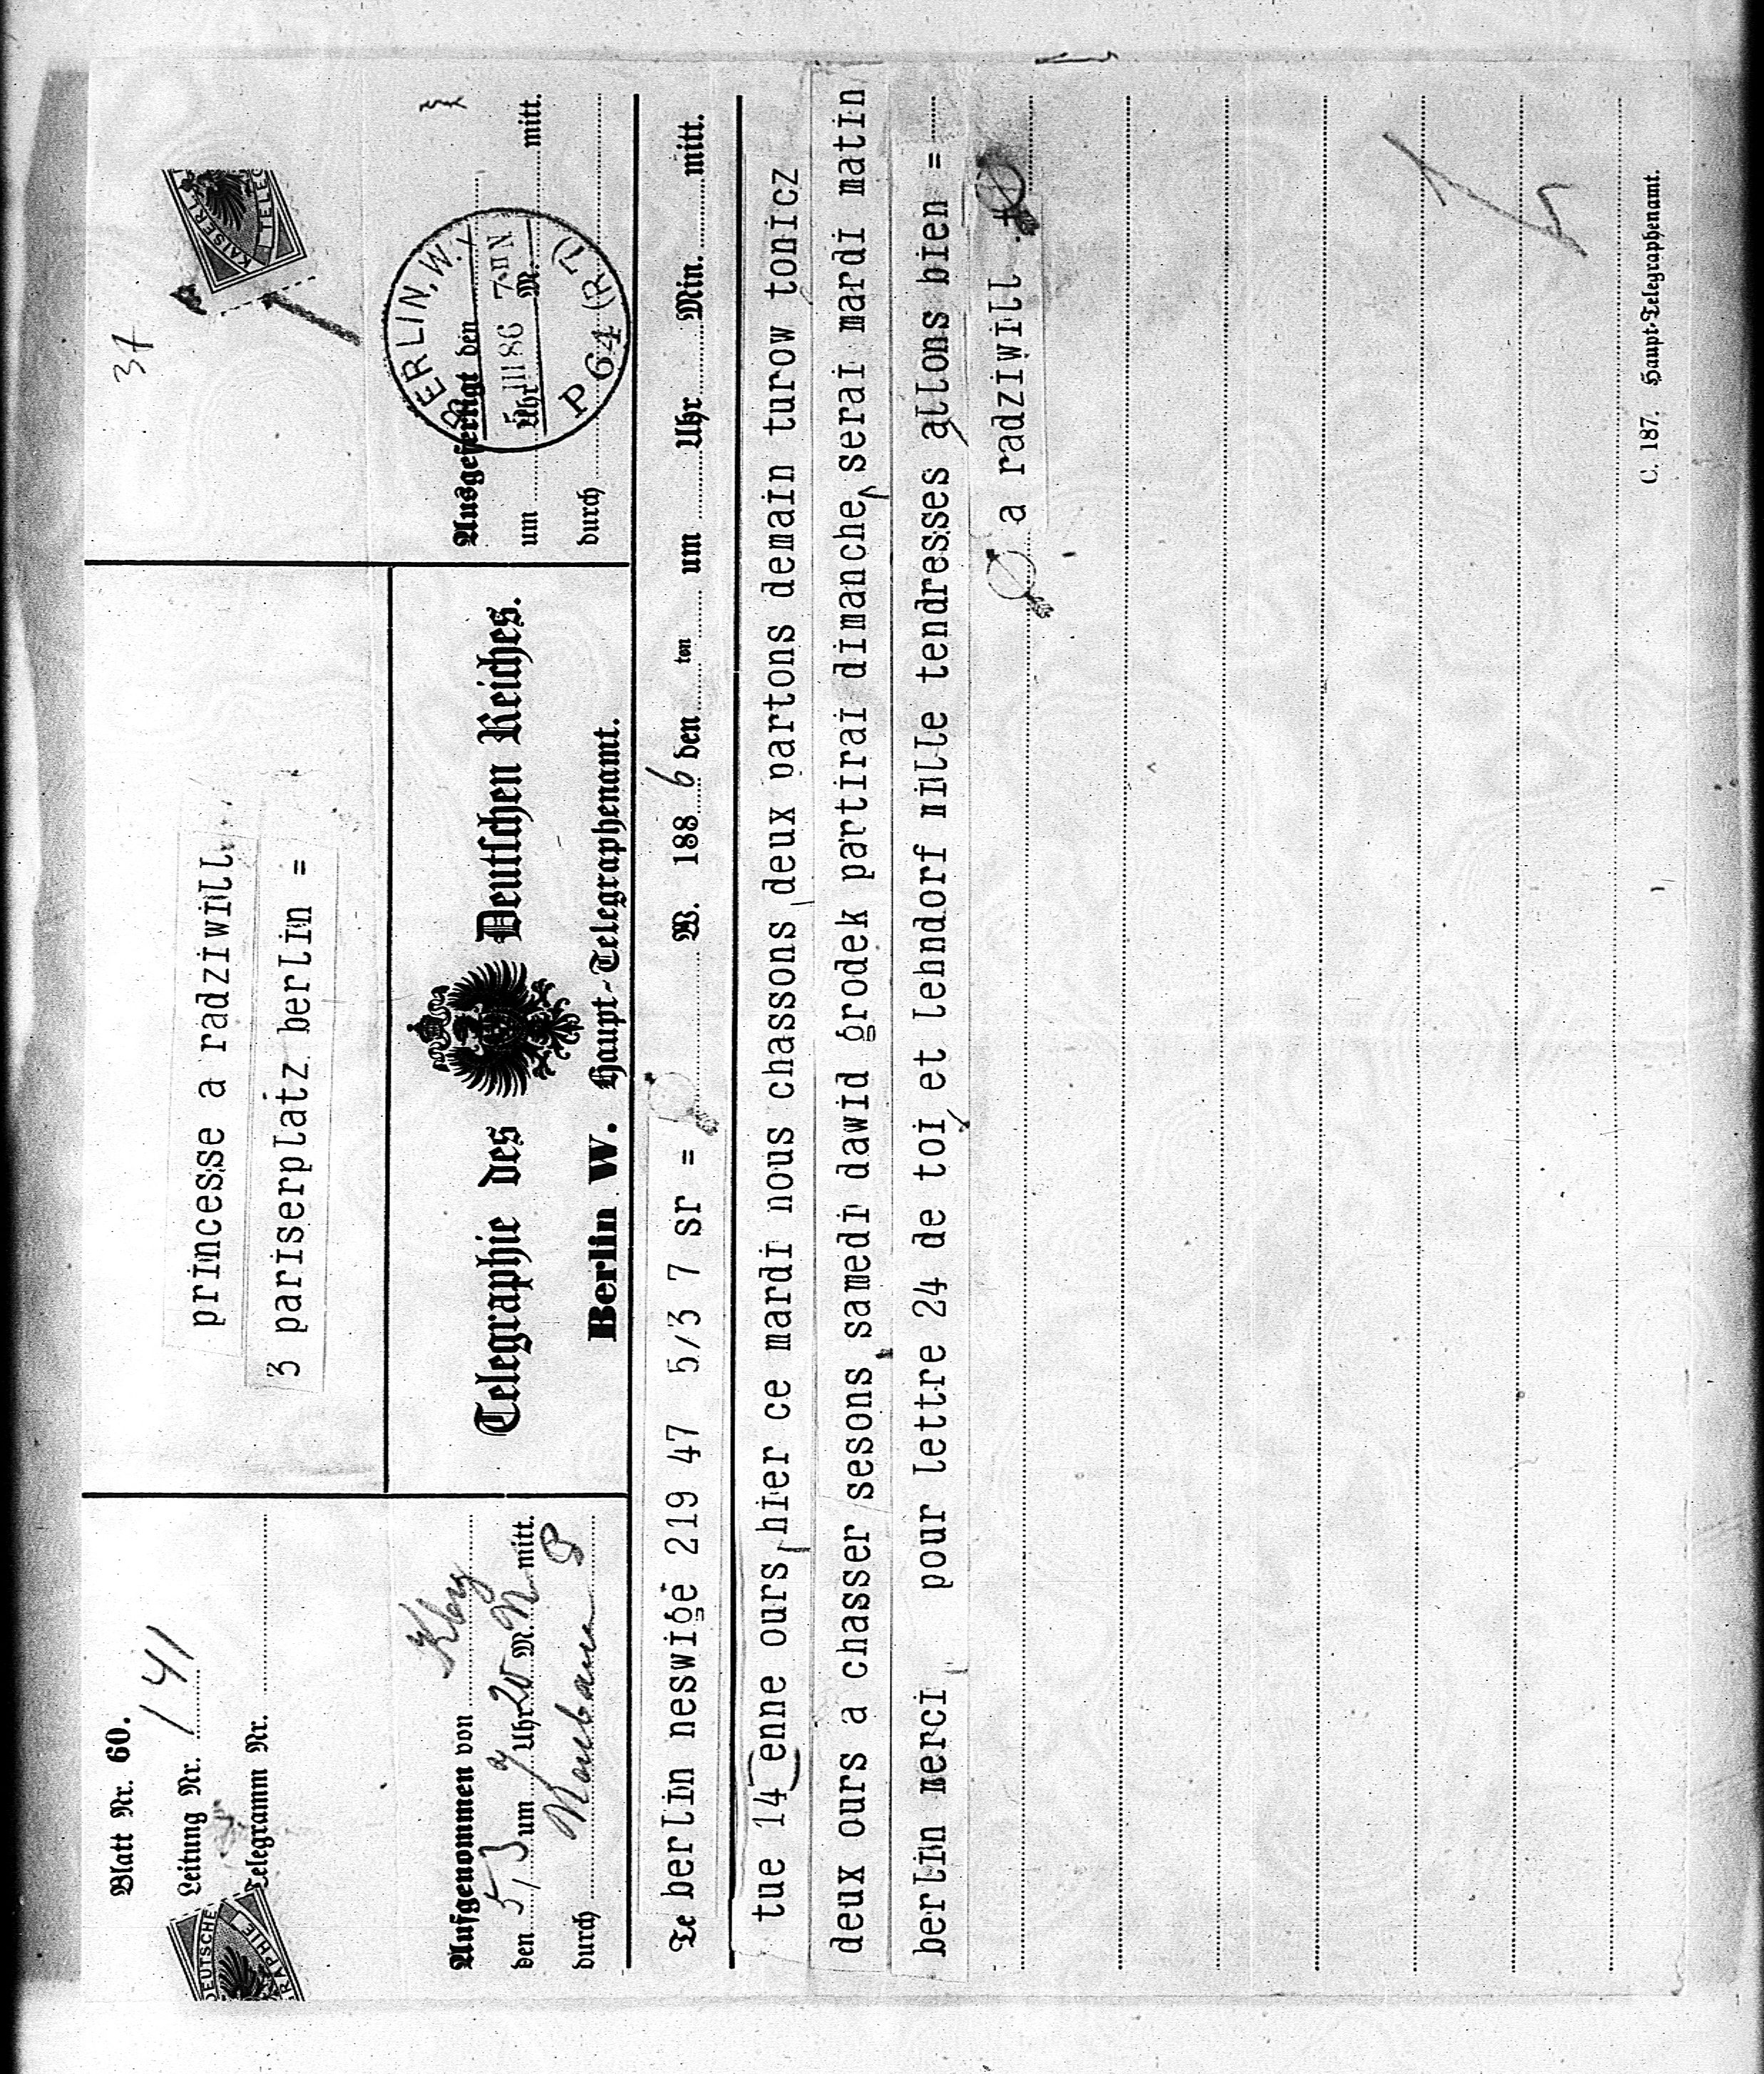 Blatt Nr. 60.
Leitung Nr. 141
Telegramm Nr.
DEUTSCHE
37
KAISERL
TELEG
princesse a radziwill
3 pariserplatz berlin =
Aufgenommen von
den 5/3 um 7 Uhr 20 M. N mitt.
durch
Telegraphie des Deutschen Reiches.
Berlin W. Haupt-Telegraphenamt.
Ausgefertigt den
um Uhr M. mitt.
durch
BERLIN, W.
5 III 86 7-8 N
P 64 (R 7)
Te berlin neswige 219 47 5/3 7 sr = W. 1886 den ten um Uhr Min. mitt.
tue 14 enne ours, hier ce mardi nous chassons, deux partons demain turow tonicz
deux ours a chasser sesons, samedi dawid grodek partirai dimanche, serai mardi matin
berlin merci pour lettre 24 de toi, et lehndorf mille tendresses allons bien =
a radziwill +
C. 187. Haupt-Telegraphenamt.